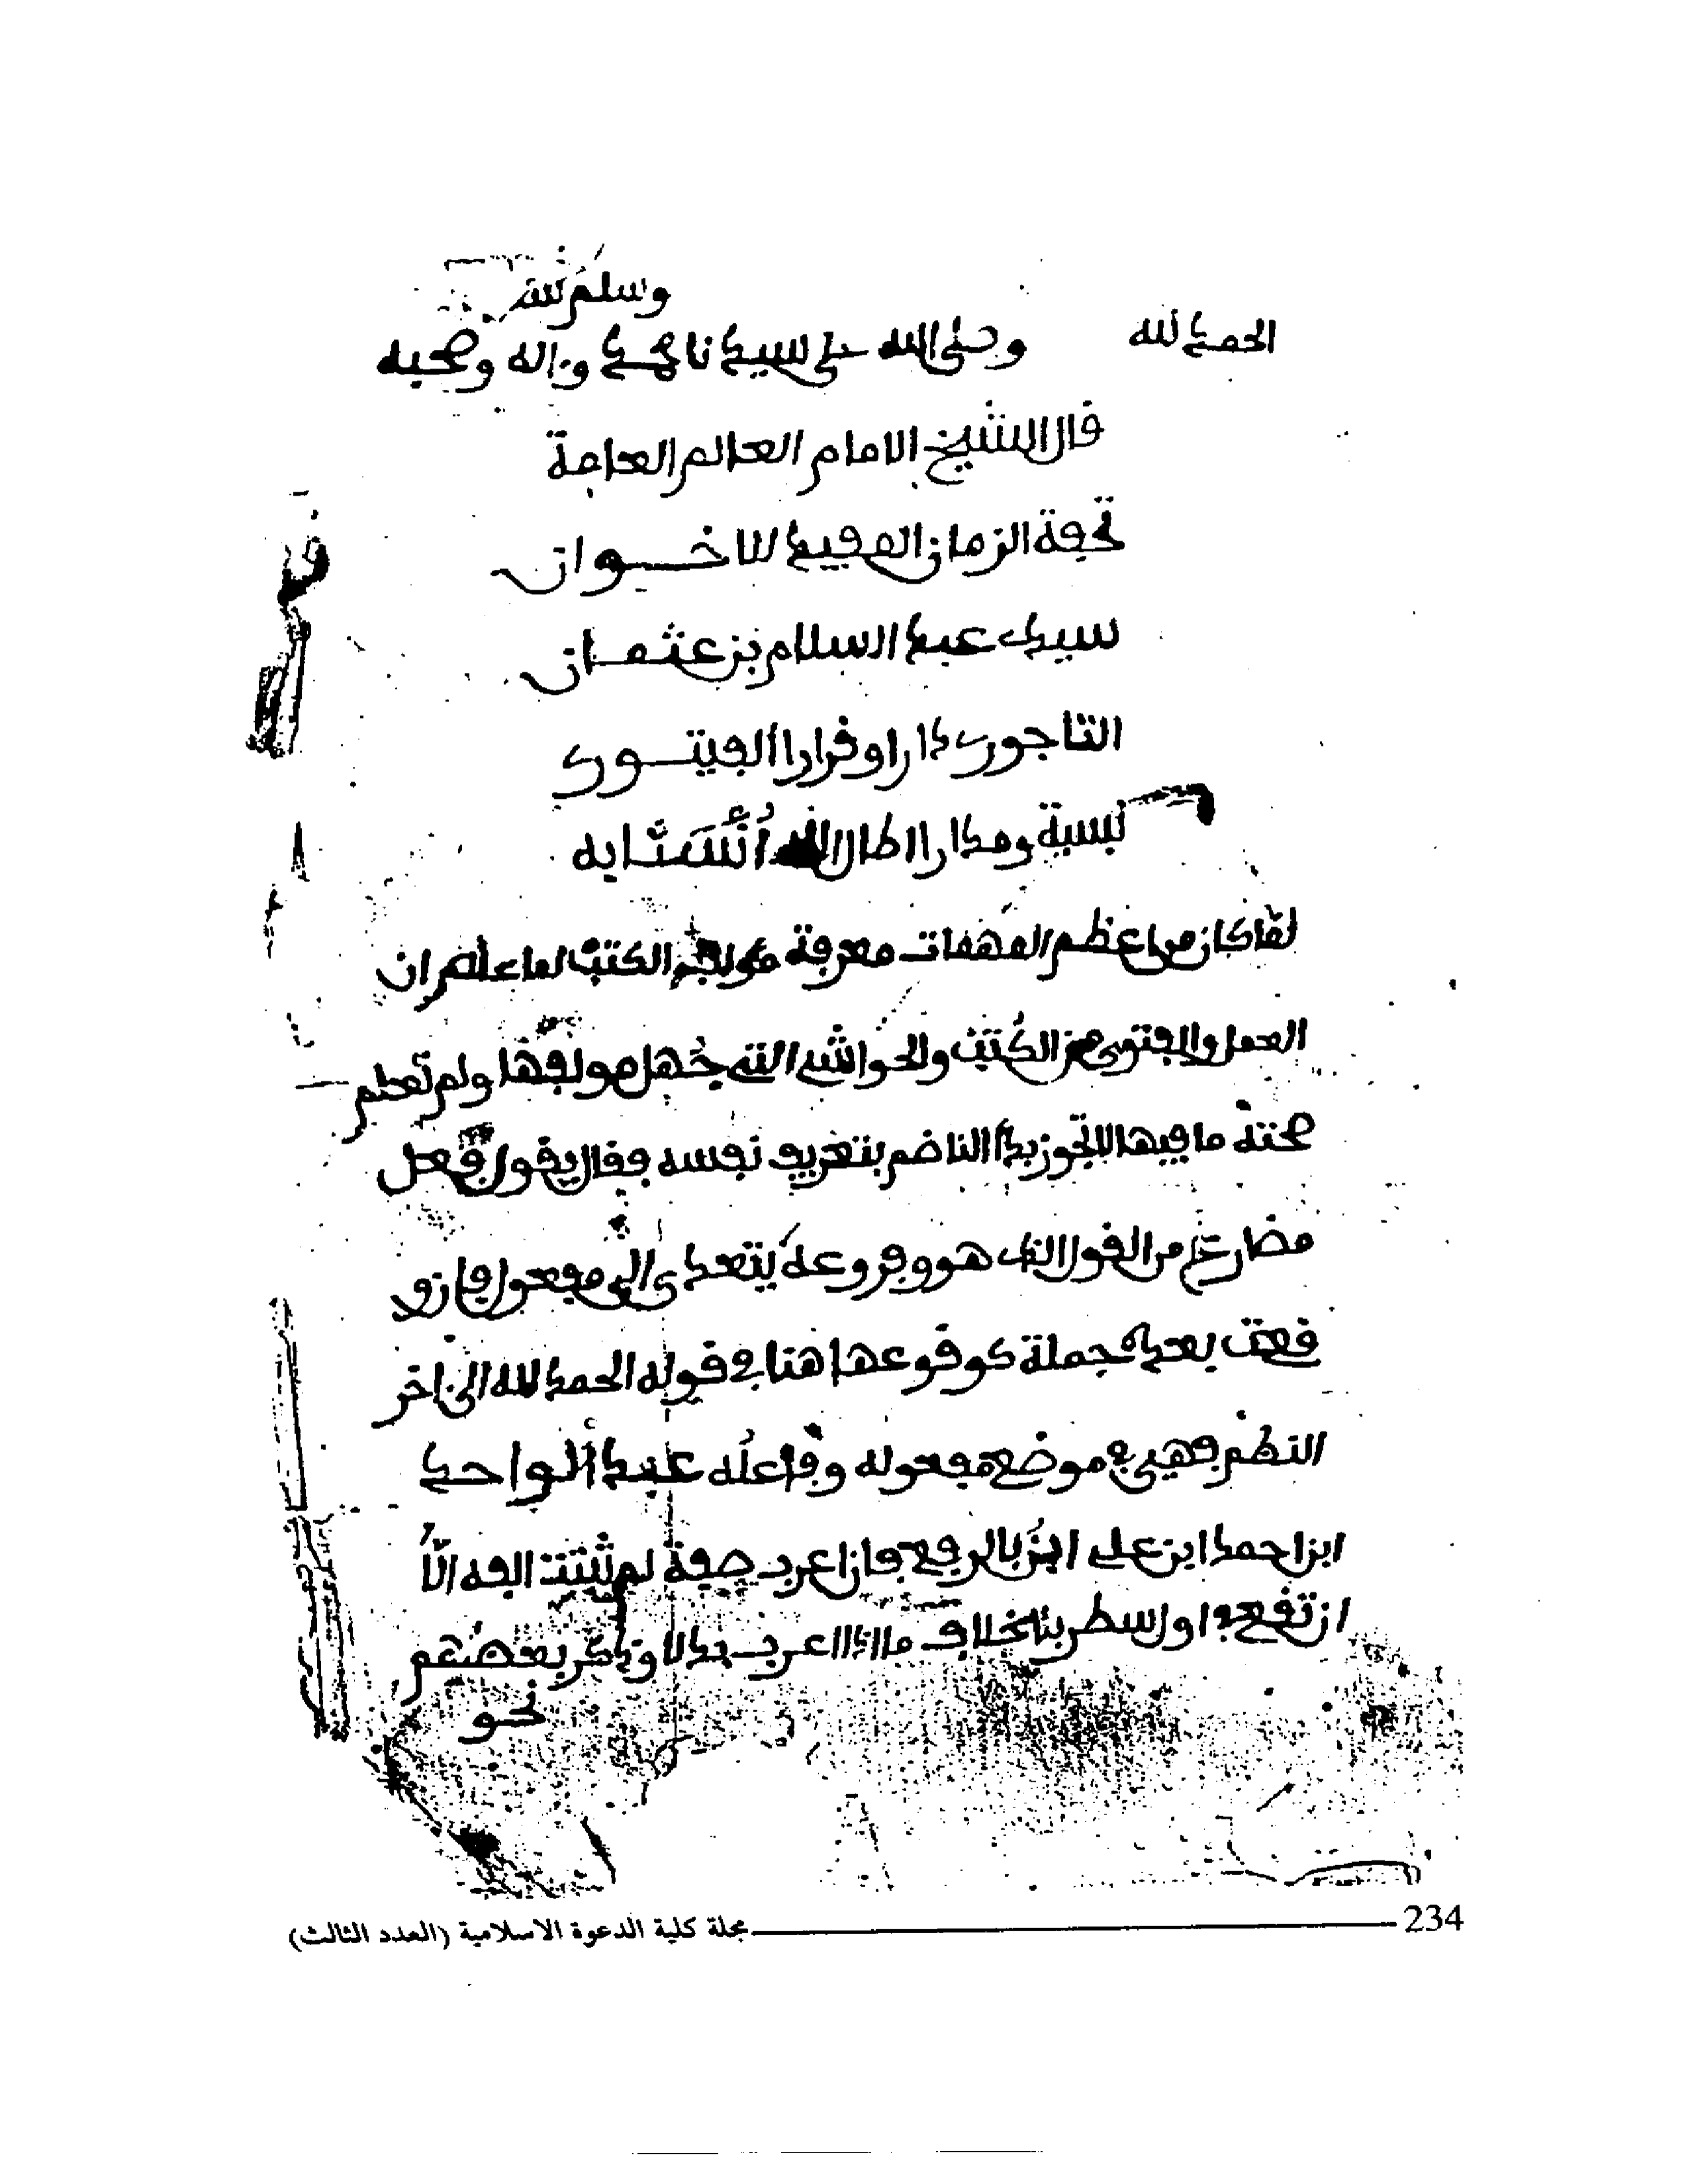 الحمد لله وصلى الله على سيدنا محمد وءاله وصحبه
وسلم
قال الشيخ الامام العالم العلامة
تحفة الزمان المفيد للاخوان
سيدي عبد السلام بن عثمان
التاجوري دارا وقرارا الفيتوري
نسبة ومدارا اطال الله أنسنا به
لما كان من اعظم المهمات معرفة مولف الكتب لما علم ان
العمل والفتوى من الكتب والحواشي التي جهل مولفها ولم تعلم
صحتة ما فيها لا تجوز بدا الناضم بتعريف نفسه فقال يقول فعل
مضارع من القول الذي هو وفروعه يتعدى الى مفعول فان و
قعت بعده جملة كوقوعها هنا في قوله الحمد لله الى ءاخر
النظم فهي في موضع مفعوله وفاعله عبد الواحد
ابن احمد ابن علي ابن بالرفع فان اعرب صفة لم تثبت الفه الا
ان تقع في اول سطر بخلاف ما اذا اعرب بدلا وذكر بعضهم
نحو
234 مجلة كلية الدعوة الاسلامية (العدد الثالث)